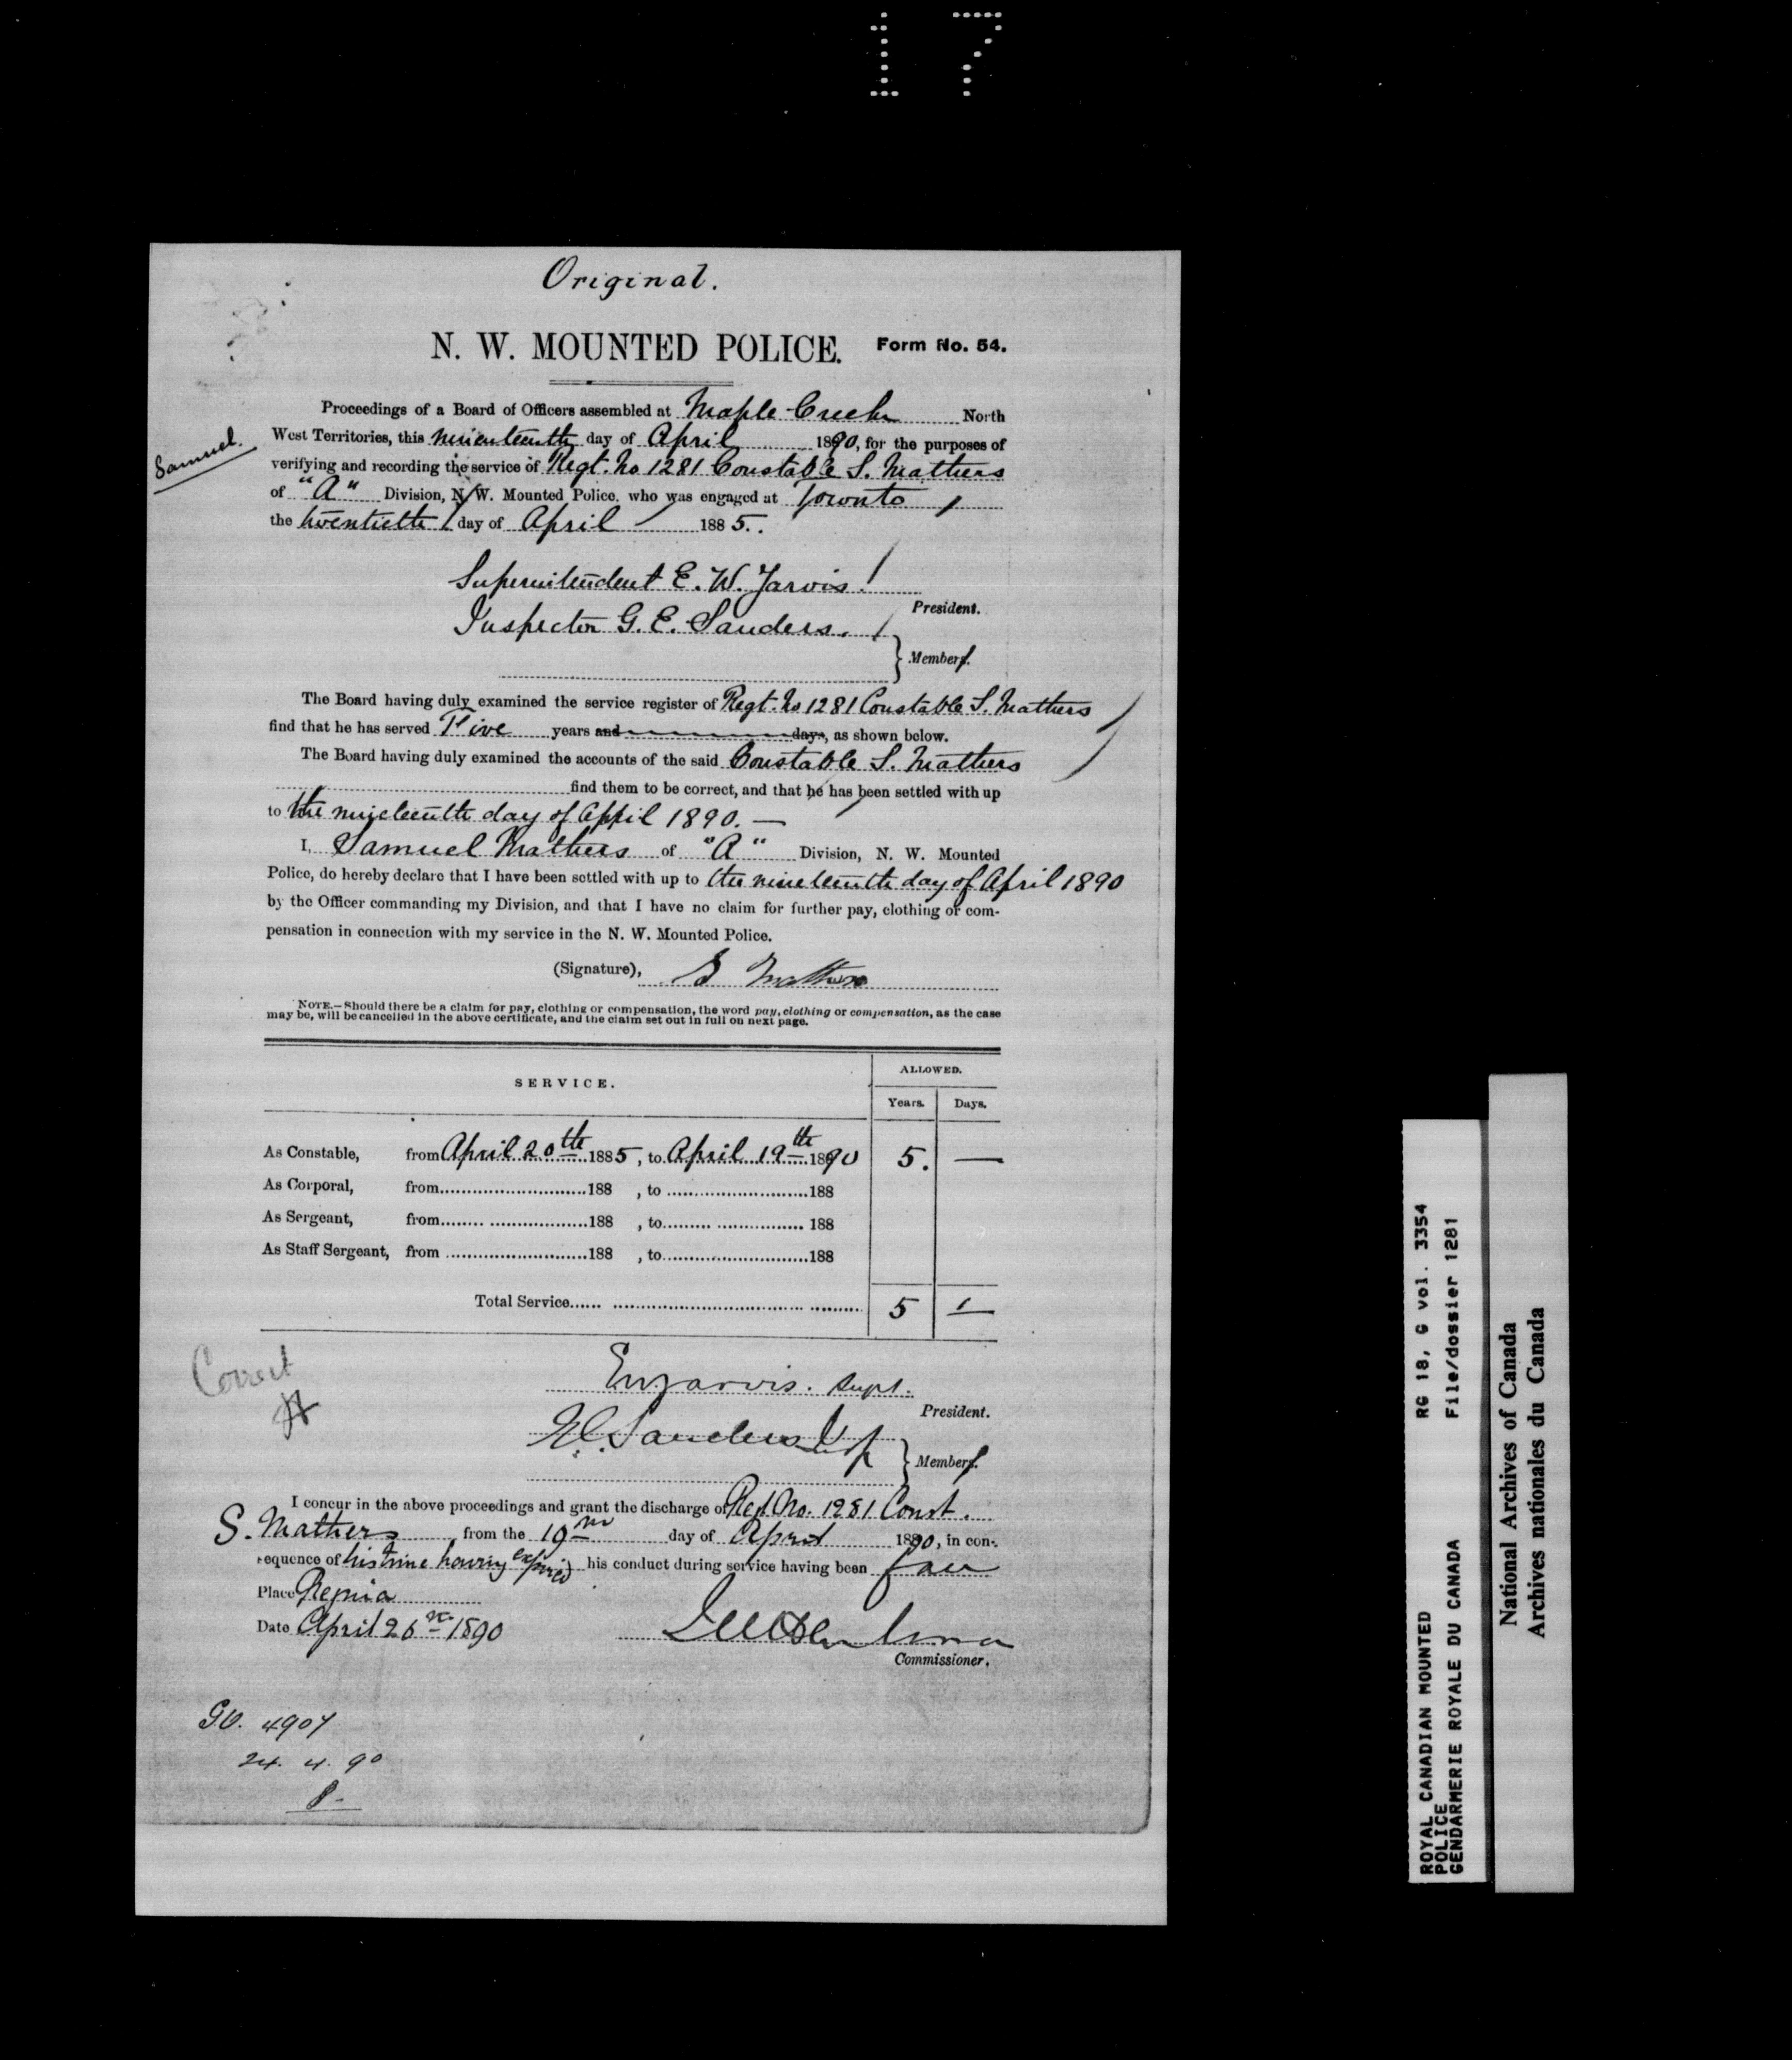 17
Original.
N. W. MOUNTED POLICE. Form No. 54.
Proceedings of a Board of Officers assembled at Maple Creek North
West Territories, this nineteenth day of April 1890, for the purposes of
Samuel.
verifying and recording the service of Regt. No 1281 Constable S. Mathers
of "A" Division, N. W. Mounted Police, who was engaged at Toronto
the twentieth day of April 1885.
Superintendent E. W. Jarvis
President.
Inspector G. E. Sanders.
Members.
The Board having duly examined the service register of Regt. No 1281 Constable S. Mathers
find that he has served Five years and days, as shown below.
The Board having duly examined the accounts of the said Constable S. Mathers
find them to be correct, and that he has been settled with up
to the nineteenth day of April 1890. —
I, Samuel Mathers of "A" Division, N. W. Mounted
Police, do hereby declare that I have been settled with up to the nineteenth day of April 1890
by the Officer commanding my Division, and that I have no claim for further pay, clothing or com-
pensation in connection with my service in the N. W. Mounted Police.
(Signature), S Mathers
NOTE.—Should there be a claim for pay, clothing or compensation, the word pay, clothing or compensation, as the case
may be, will be cancelled in the above certificate, and the claim set out in full on next page.
SERVICE. ALLOWED.
Years. Days.
As Constable, from April 20th 1885, to April 19th 1890 5. —
As Corporal, from 188 , to 188
As Sergeant, from 188 , to 188
As Staff Sergeant, from 188 , to 188
Total Service 5 —
Correct
EWJarvis. Supt.
President.
Sanders Insp
Members.
I concur in the above proceedings and grant the discharge of Regt. No. 1281 Const.
S. Mathers from the 19th day of April 1890, in con-
sequence of his time having expired his conduct during service having been fair
Place Regina
Date April 26th 1890
Commissioner.
GO. 4907
24. 4. 90
ROYAL CANADIAN MOUNTED RG 18, G vol. 3354
POLICE
GENDARMERIE ROYALE DU CANADA File/dossier 1281
National Archives of Canada
Archives nationales du Canada